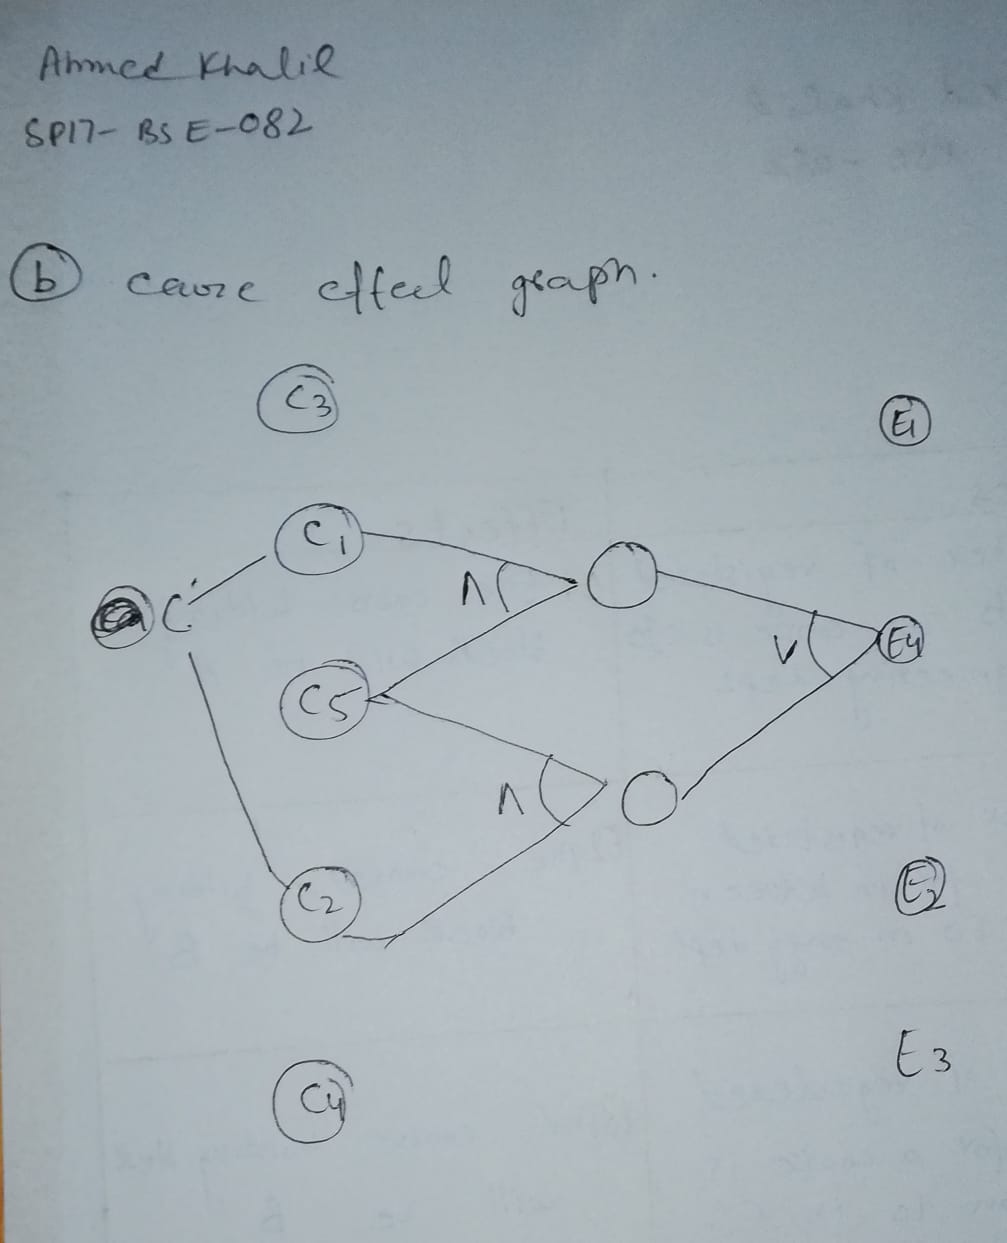 Ahmed Khalil
SP17- BS E-082
b cause effect graph.
C3
E1
C1
Λ
C
V
E4
C5
Λ
C2
E2
E3
C4